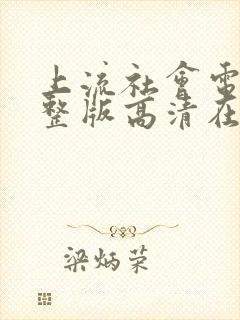 上流社會電
整版高清在
梁炳荣